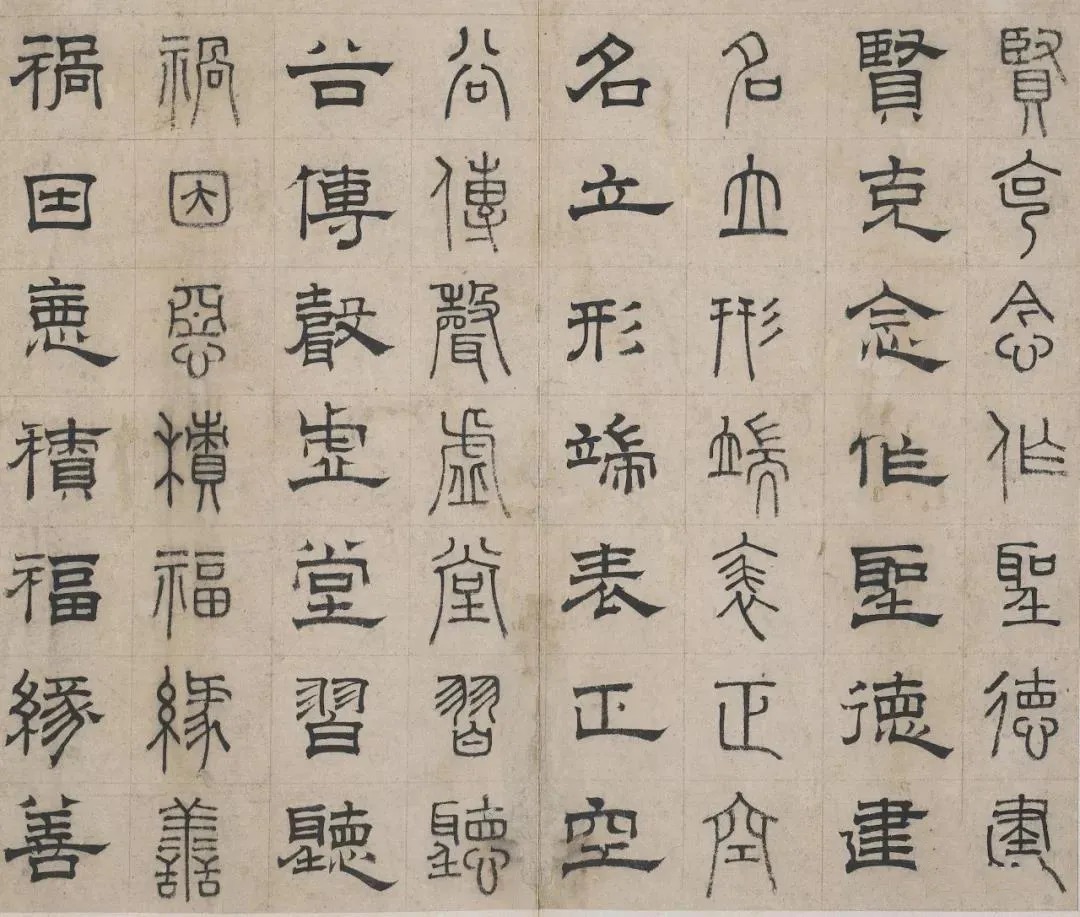 賢克念作聖德建
賢克念作聖德建
名立形端表正空
名立形端表正空
谷傳聲虛堂習聽
谷傳聲虛堂習聽
禍因惡積福緣善
禍因惡積福緣善